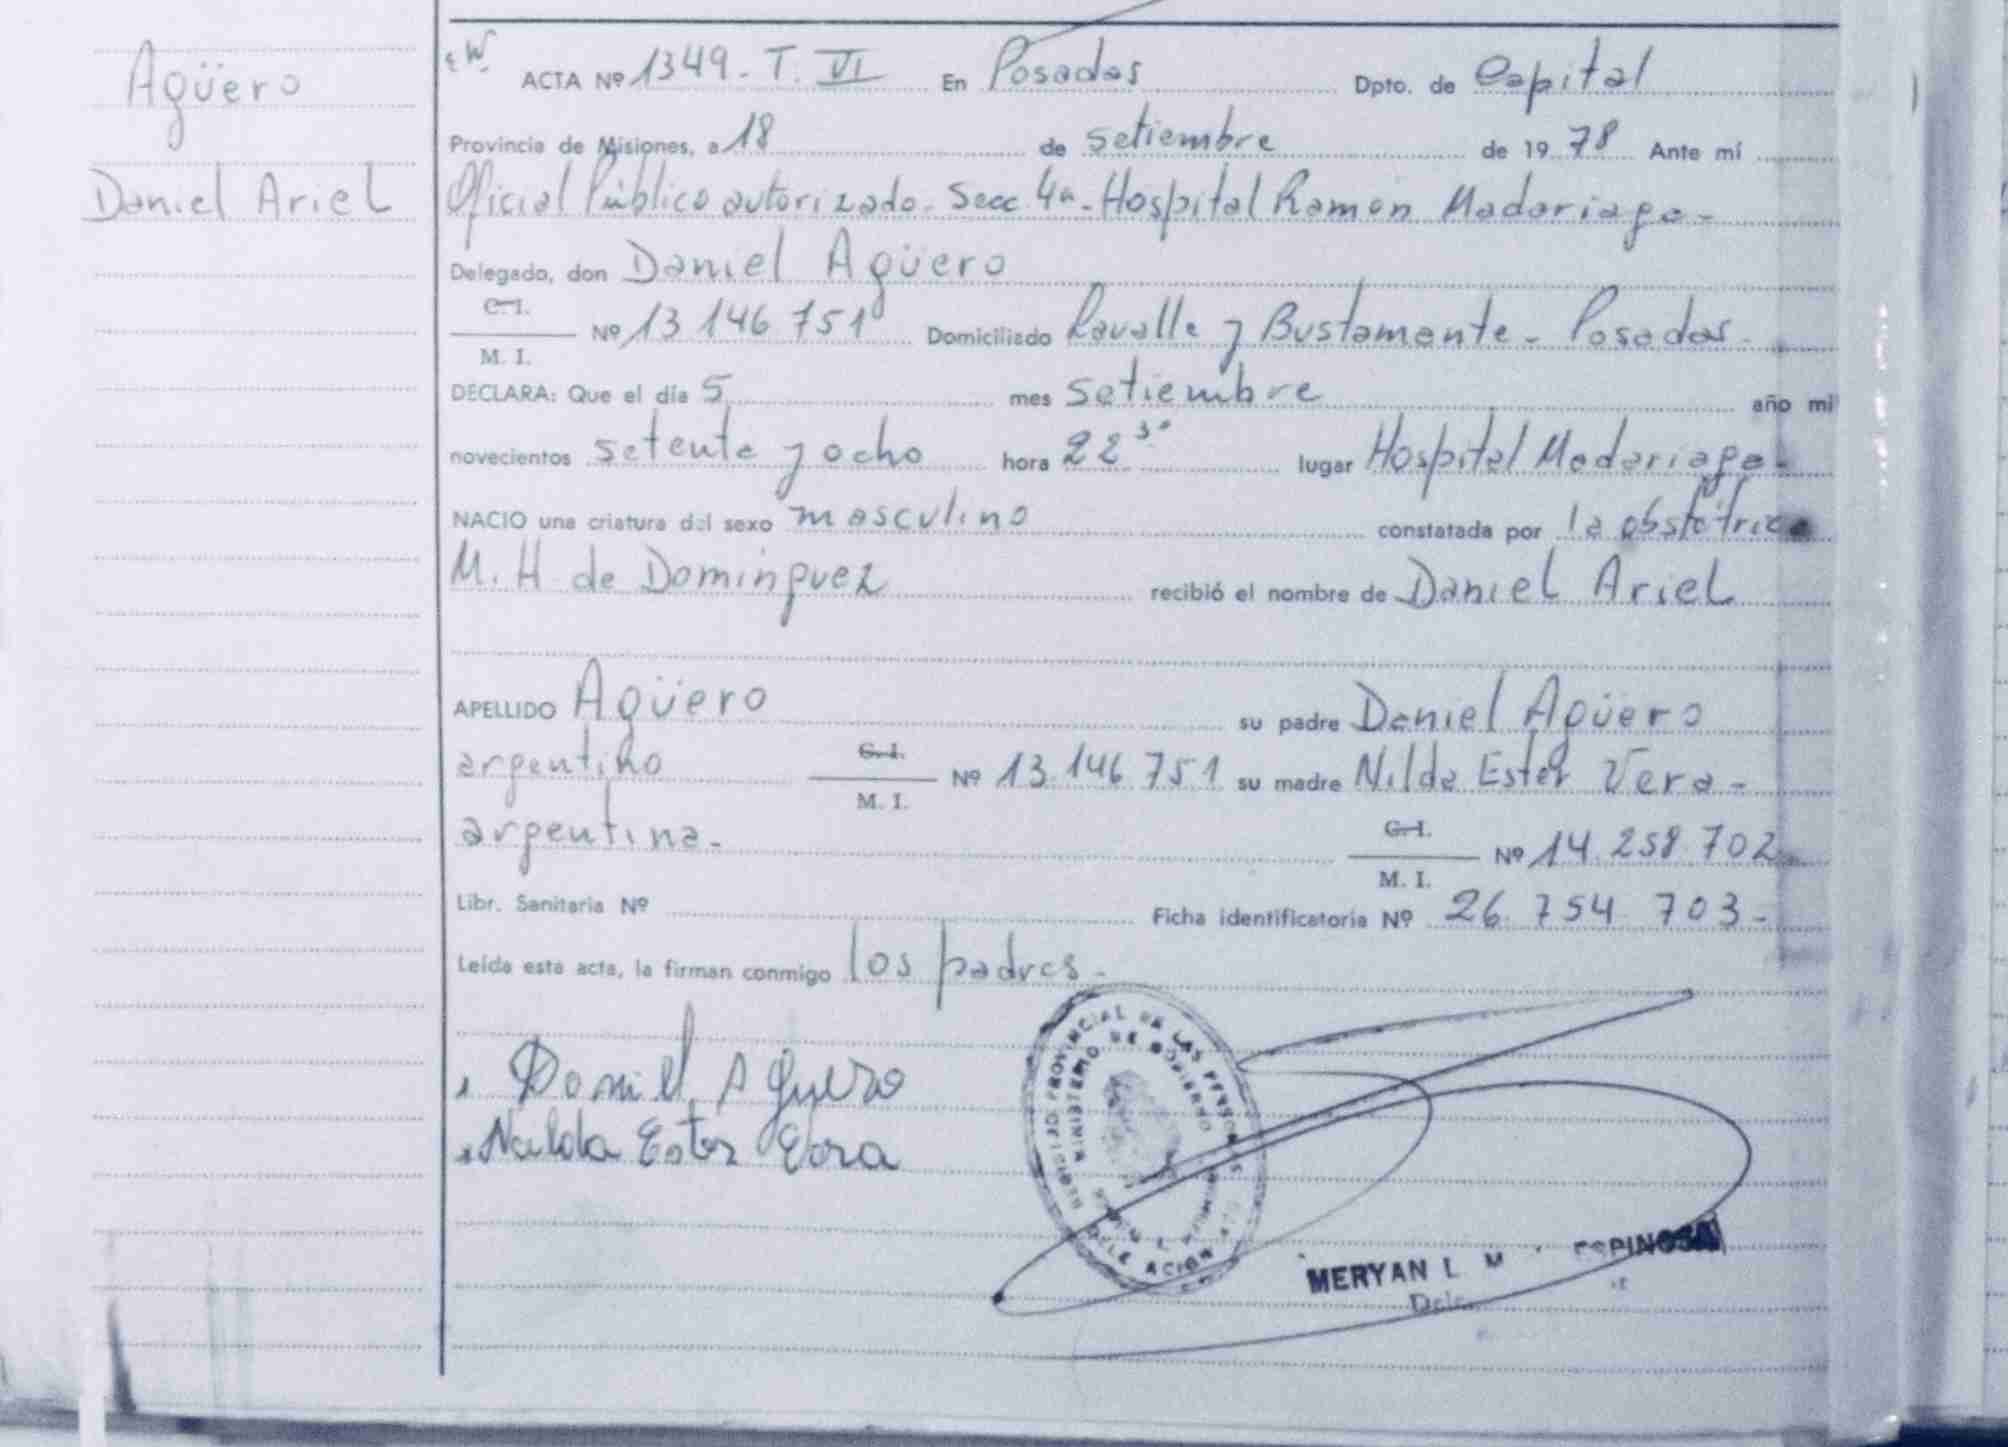 Agüero
Daniel Ariel
ACTA Nº 1349 - T. VI En Posadas Dpto. de Capital
Provincia de Misiones, a 18 de setiembre de 1978 Ante mí
Oficial Público autorizado - Secc 4ª - Hospital Ramon Madariaga -
Delegado, don Daniel Agüero
C. I.
M. I.
Nº 13 146 751 Domiciliado Lavalle y Bustamante - Posadas -
DECLARA: Que el día 5 mes setiembre año mil
novecientos setenta y ocho hora 22 30 lugar Hospital Madariaga -
NACIO una criatura del sexo masculino constatada por la obstétrica
M. H de Dominguez recibió el nombre de Daniel Ariel
APELLIDO Agüero su padre Daniel Agüero
argentino C. I. M. I. Nº 13.146.751 su madre Nilda Ester Vera -
argentina - C. I. M. I. Nº 14.258.702
Libr. Sanitaria Nº Ficha identificatoria Nº 26 754 703 -
Leída esta acta, la firman conmigo los padres -
Daniel Aguero
Nalda Ester Vera
REGISTRO PROVINCIAL DE LAS PERSONAS
MINISTERIO DE GOBIERNO
MERYAN L. M ESPINOSA